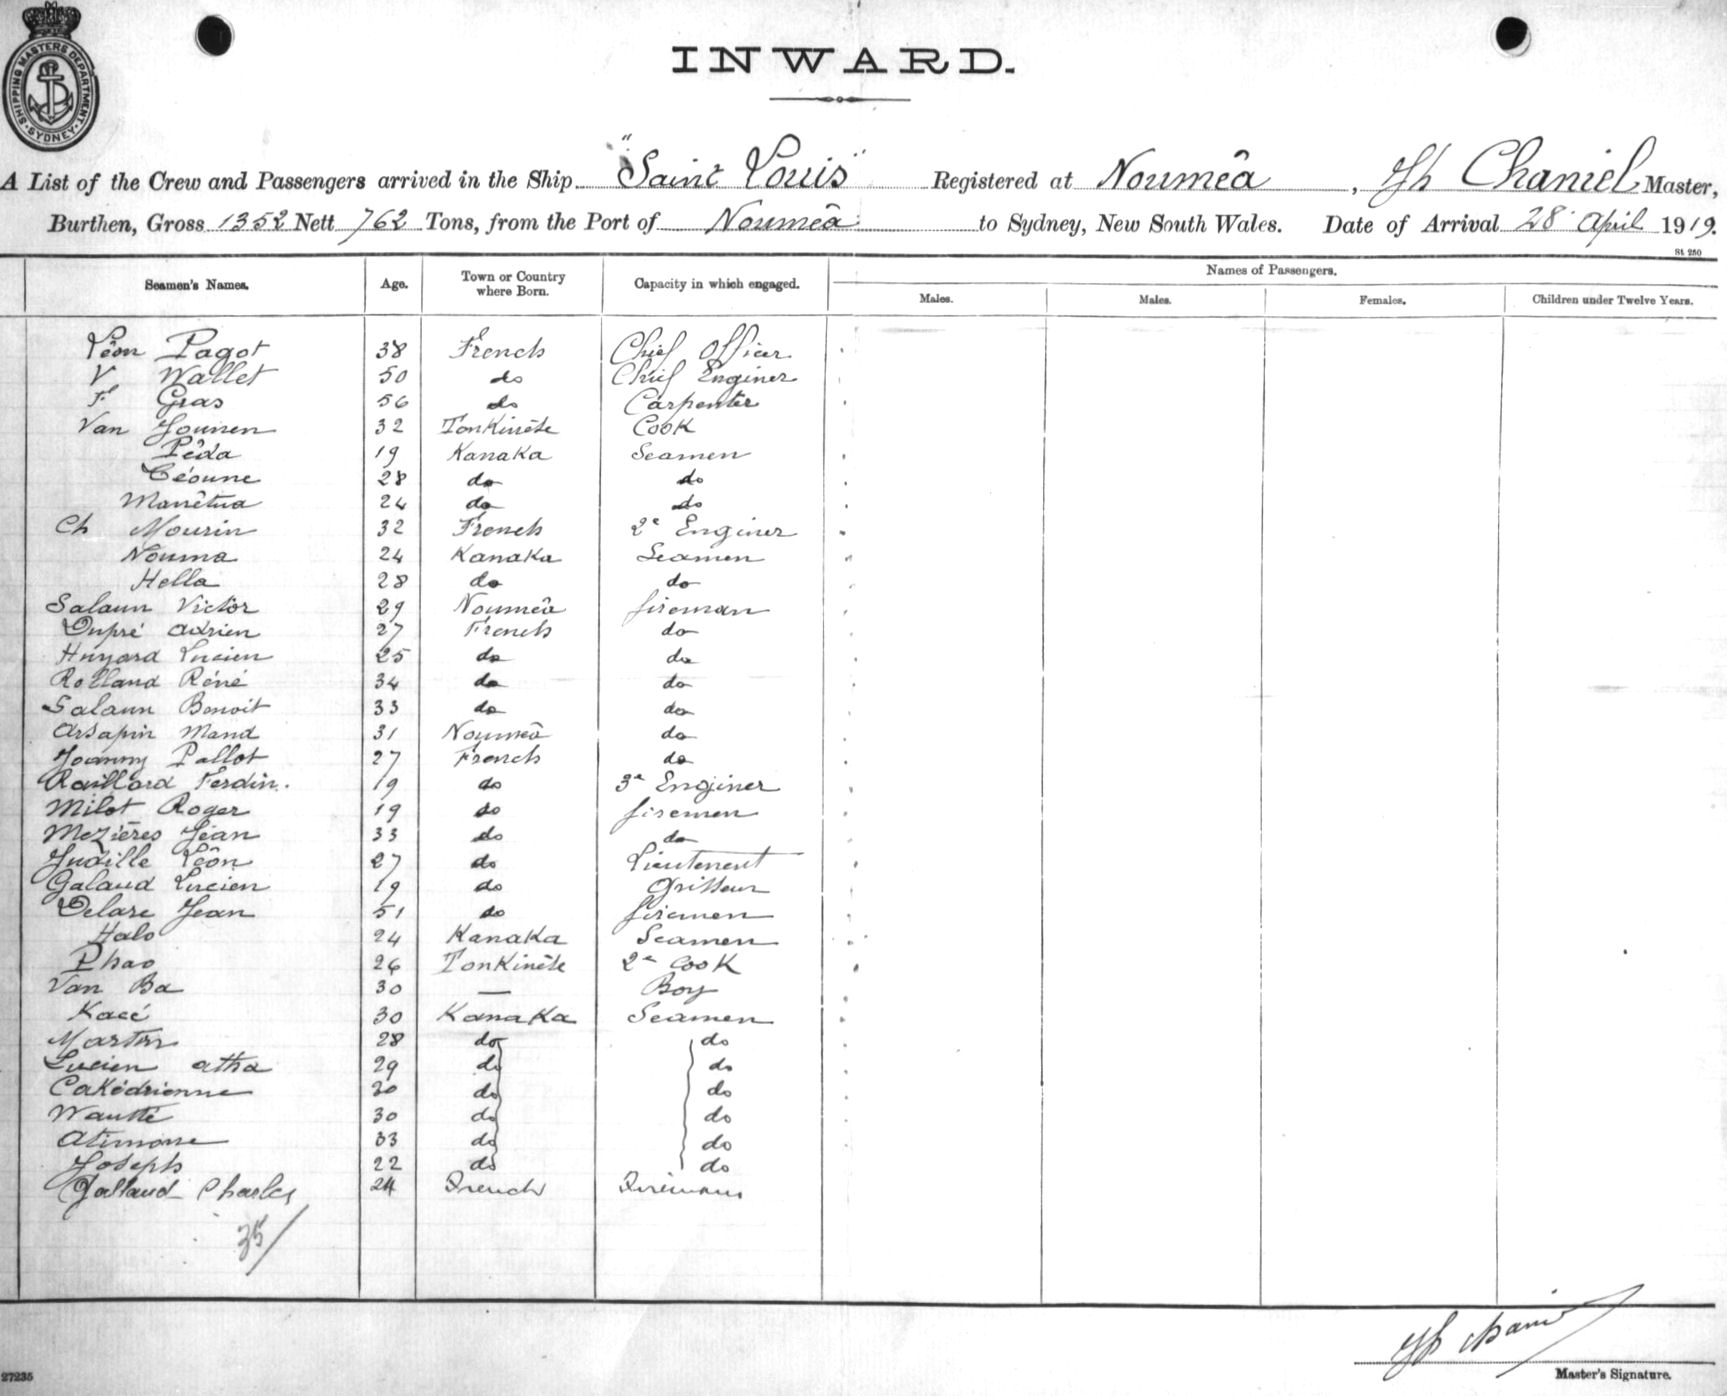 SHIPPING MASTERS DEPARTMENT · SYDNEY ·
INWARD.
A List of the Crew and Passengers arrived in the Ship "Saint Louis" Registered at Nouméa, Jh Chaniel Master,
Burthen, Gross 1352 Nett 762 Tons, from the Port of Nouméa to Sydney, New South Wales. Date of Arrival 28 April 1919.
St 250
Seamen's Names. Age. Town or Country where Born. Capacity in which engaged. Names of Passengers.
Males. Males. Females. Children under Twelve Years.
Léon Pagot 38 French Chief Officer
V Wallet 50 do Chief Enginer
F Gras 56 do Carpenter
Van Jounen 32 Tonkinése Cook
Pêda 19 Kanaka Seamen
Céoune 28 do do
Manêtua 24 do do
Ch Mourin 32 French 2e Enginer
Nouma 24 Kanaka Seamen
Hella 28 do do
Salaun Victor 29 Nouméa fireman
Dupré Adrien 27 French do
Huyard Lucien 25 do do
Rolland Réné 34 do do
Salaun Benoit 33 do do
Arsapin Mand 31 Nouméa do
Joanny Pallot 27 French do
Raillard Ferdin. 19 do 3e Enginer
Milot Roger 19 do firemen
Mezières Jean 33 do do
Judille Léon 27 do Lieutenent
Galaud Lucien 19 do Grisseur
Delare Jean 51 do firemen
Halo 24 Kanaka Seamen
Phao 26 Tonkinése 2e Cook
Van Ba 30 — Boy
Kacé 30 Kanaka Seamen
Martin 28 do do
Lucien Atha 29 do do
Cakédrienne 30 do do
Wautté 30 do do
Atimone 33 do do
Joseph 22 do do
Galland Charles 24 French Firemans
35/
Jh Chaniel
Master's Signature.
27235